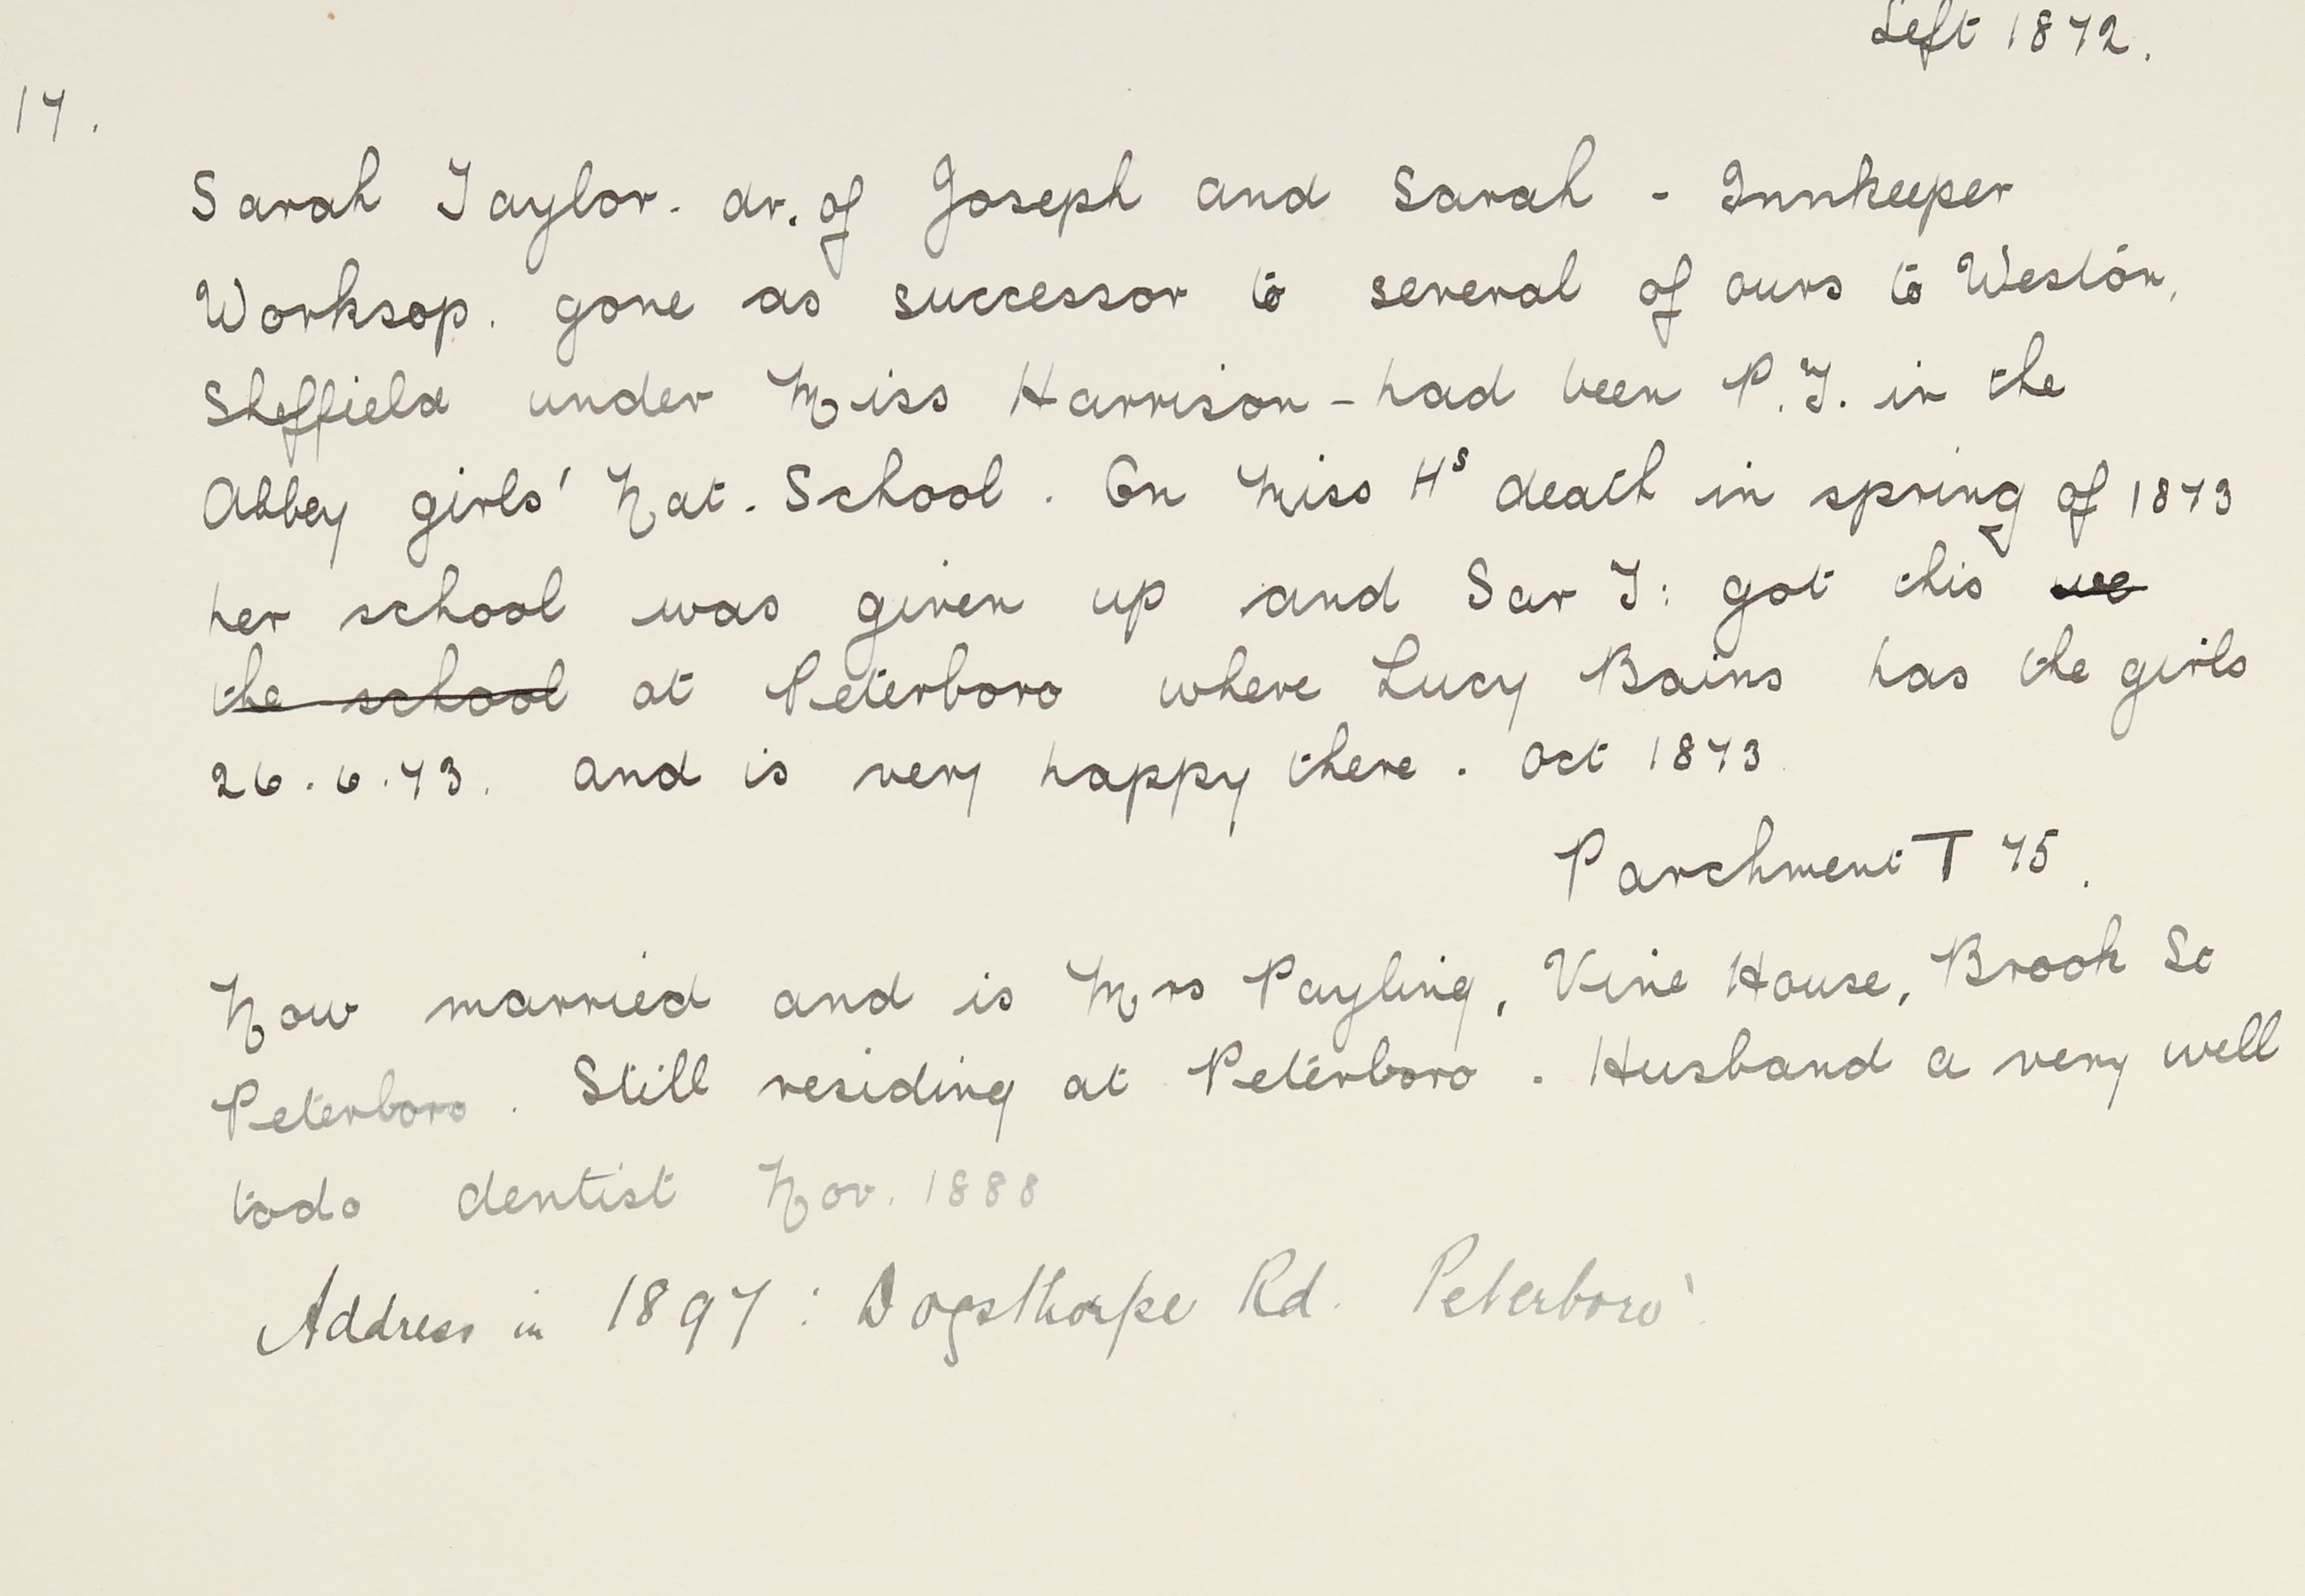 Left 1872.
17.
Sarah Taylor. dr. of Joseph and Sarah - Innkeeper
Worksop. gone as successor to several of ours to Weston,
Sheffield under Miss Harrison - had been P.T. in the
Abbey girls' Nat. School. On Miss Hs death in spring of 1873
her school was given up and Sar T: got this we
the school at Peterboro where Lucy Bains has the girls
26.6.73. and is very happy there. Oct 1873
Parchment T 75.
Now married and is Mrs Payling, Vine House, Brook St
Peterboro. Still residing at Peterboro. Husband a very well
todo dentist Nov. 1888
Address in 1897: Dogsthorpe Rd. Peterboro'